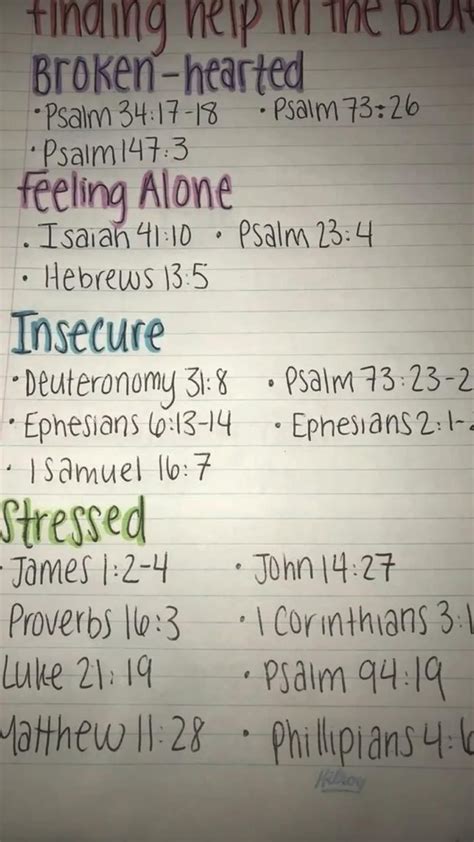 finding help in the
Broken-hearted
• Psalm 34:17-18 • Psalm 73:26
• Psalm 147:3
feeling Alone
• Isaiah 41:10 • Psalm 23:4
• Hebrews 13:5
Insecure
• Deuteronomy 31:8 • Psalm 73:23-2
• Ephesians 6:13-14 • Ephesians 2:1-
• 1 Samuel 16:7
Stressed
• James 1:2-4 • John 14:27
Proverbs 16:3 • 1 Corinthians 3:1
Luke 21:19 • Psalm 94:19
Matthew 11:28 • Phillipians 4:6
Hilroy